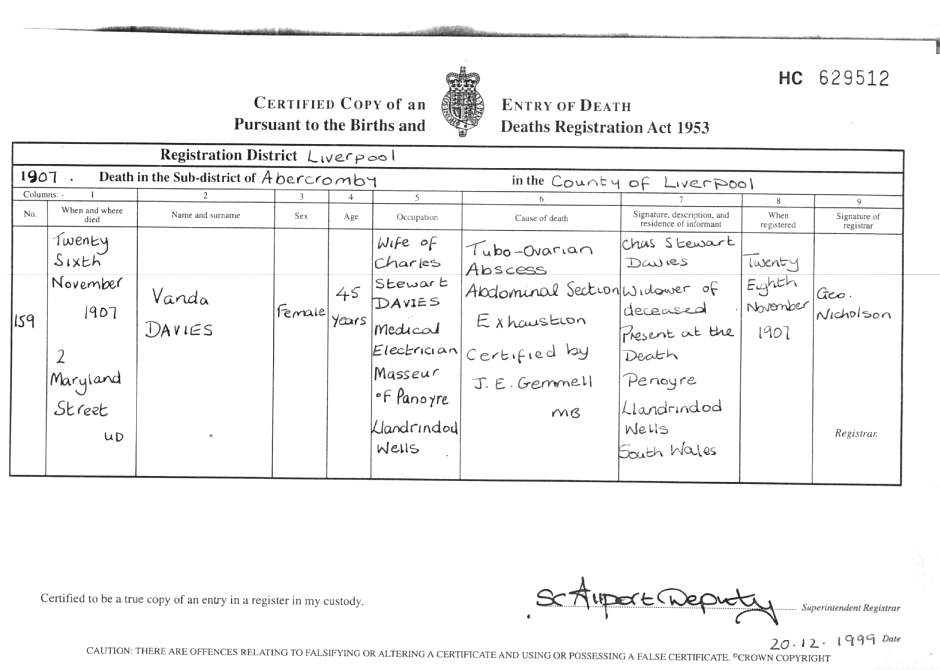 HC 629512
CERTIFIED COPY of an ENTRY OF DEATH
Pursuant to the Births and Deaths Registration Act 1953
Registration District Liverpool
1907. Death in the Sub-district of Abercromby in the County of Liverpool
Columns:- 1 2 3 4 5 6 7 8 9
No.
When and where
died
Name and surname
Sex
Age
Occupation
Cause of death
Signature, description, and
residence of informant
When
registered
Signature of
registrar
159
Twenty
Sixth
November
1907
2
Maryland
Street
UD
Vanda
DAVIES
Female
45
Years
Wife of
Charles
Stewart
DAVIES
Medical
Electrician
Masseur
of Panoyre
Llandrindod
Wells
Tubo-Ovarian
Abscess
Abdominal Section
Exhaustion
Certified by
J. E. Gemmell
MB
Chas Stewart
Davies
Widower of
deceased
Present at the
Death
Penoyre
Llandrindod
Wells
South Wales
Twenty
Eighth
November
1907
Geo.
Nicholson
Registrar.
Certified to be a true copy of an entry in a register in my custody.
Deputy Superintendent Registrar
20.12.1999 Date
CAUTION: THERE ARE OFFENCES RELATING TO FALSIFYING OR ALTERING A CERTIFICATE AND USING OR POSSESSING A FALSE CERTIFICATE. ©CROWN COPYRIGHT